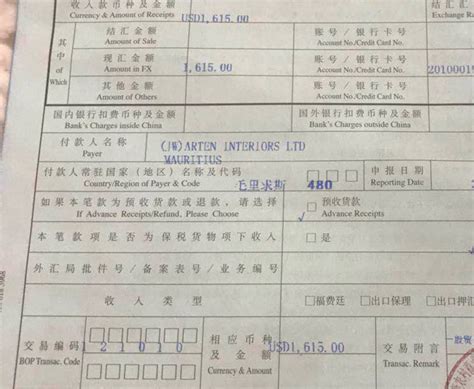 收入款币种及金额 USD1,615.00 结汇汇
Currency & Amount of Receipts Exchange Ra
其中 of Which
结汇金额 账号/银行卡号
Amount of Sale Account No./Credit Card No.
现汇金额 1,615.00 账号/银行卡号
Amount in FX Account No./Credit Card No. 20100019
其他金额 账号/银行卡号
Amount of Others Account No./Credit Card No.
国内银行扣费币种及金额 国外银行扣费币种及金额
Bank's Charges inside China Bank's Charges outside China
付款人名称 ARTEN INTERIORS LTD
Payer MAURITIUS
付款人常驻国家（地区）名称及代码 毛里求斯 480 申报日期
Country/Region of Payer & Code Reporting Date
如果本笔款为预收货款或退款，请选择 预收货款
If Advance Receipts/Refund, Please Choose Advance Receipts
本笔款项是否为保税货物项下收入 是
外汇局批件号/备案表号/业务编号
收入类型 福费廷 出口保理 出口押汇
交易编码 121010 相应币种及金额 USD1,615.00 交易附言 一般贸
BOP Transac. Code Currency & Amount Transac. Remark